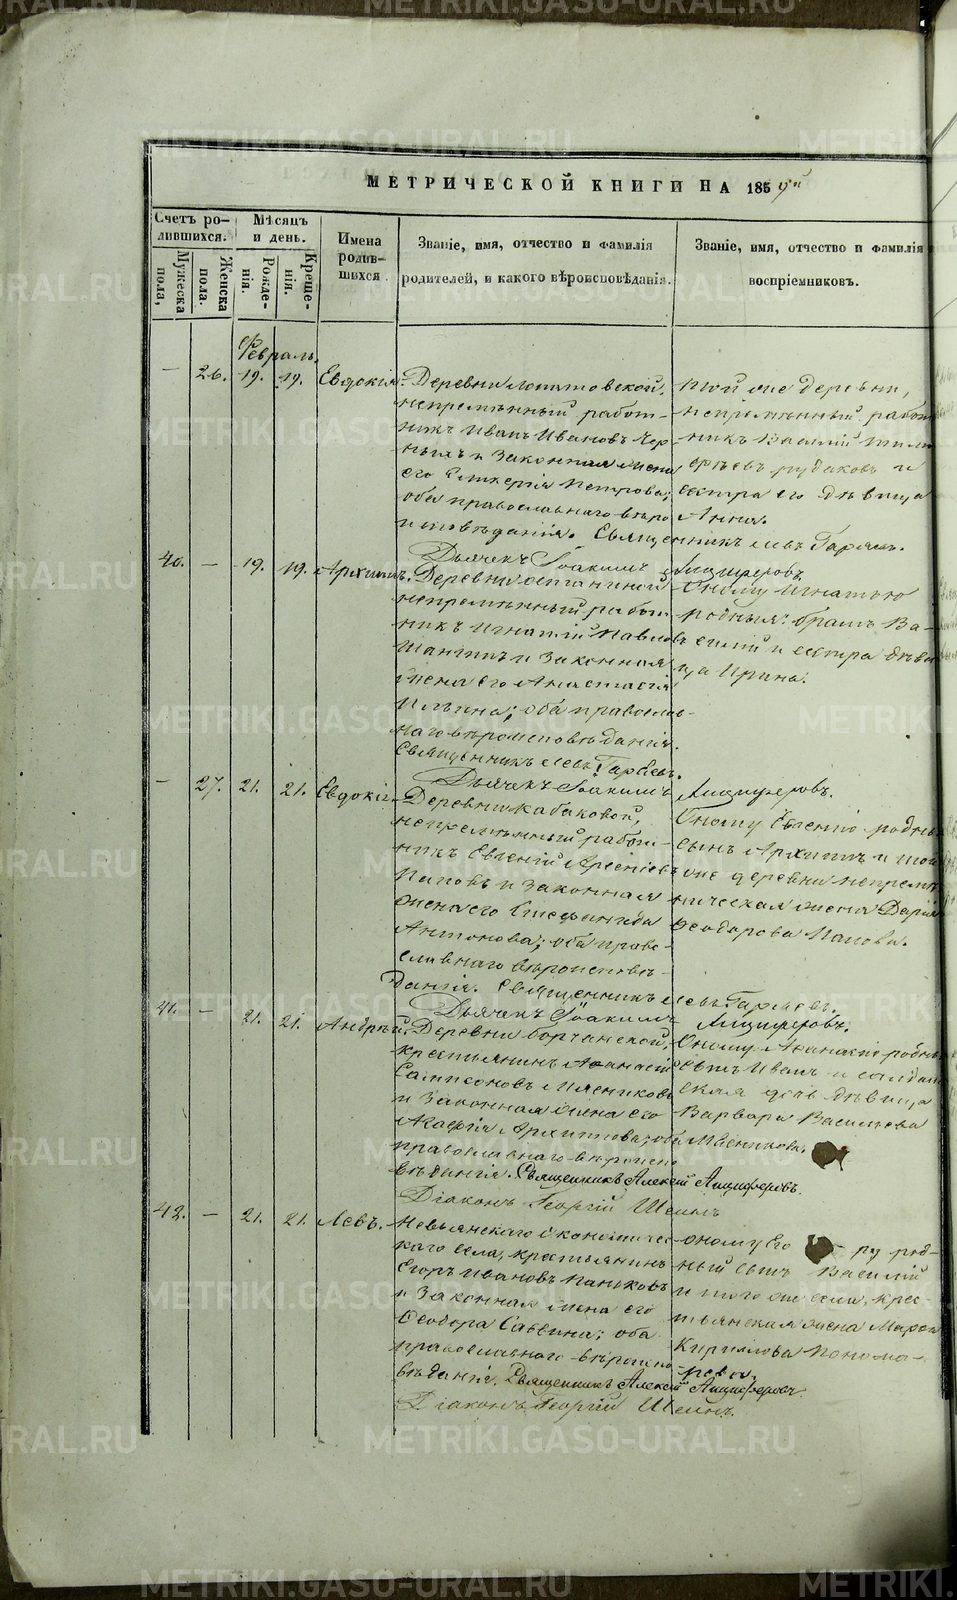 МЕТРИЧЕСКОЙ КНИГИ НА 1859й
Счетъ ро-
дившихся.
Мѣсяцъ
и день.
Мужеска
пола,
Женска
пола.
Рожде-
нія.
Креще-
нія.
Имена
родив-
шихся
Званіе, имя, отчество и фамилія
родителей, и какого вѣроисповѣданія.
Званіе, имя, отчество и фамилія
воспріемниковъ.
Февраль.
— 26. 19. 19. Евдокія
Деревни
непремѣнный работ-
никъ Иванъ Ивановъ Чер-
ныхъ и законная жена
его Гликерія Петрова;
оба православнаго вѣро
исповѣданія. Священникъ Левъ Гаряевъ.
Дьячекъ Іоакимъ Анциферовъ.
той же деревни,
непремѣнный работ
никъ Василій
Рудаковъ и
сестра его дѣвица
Анна.
40. — 19. 19. Архиппъ.
Деревни
непремѣнный работ
никъ Игнатій Павловъ
и законная
жена его Анастасія
Ильина; оба православ-
наго вѣроисповѣданія.
Священникъ Левъ Гаряевъ.
Дьячекъ Іоакимъ Анциферовъ.
Оному Игнатью
родныя: братъ Ва-
силій и сестра дѣви
ца Ирина.
— 27. 21. 21. Евдокія.
Деревни Кабаковой,
непремѣнный работ-
никъ Евгеній Арсеніевъ
Паповъ и законная
жена его Стефанида
Антонова; оба право-
славнаго вѣроисповѣ-
данія. Священникъ Левъ Гаряевъ.
Дьячекъ Іоакимъ Анциферовъ.
Оному Евгенію родны
сынъ Архиппъ и той
же деревни непремѣн
ническая жена Дарія
Феодорова Папова.
41. — 21. 21. Андрѣй.
Деревни
крестьянинъ Афанасій
Сампсоновъ Мясниковъ
и законная жена его
Агафія Архиппова; оба
православнаго вѣроиспо
вѣданія. Священникъ Алексій Анциферовъ.
Діаконъ Георгій Шеинъ
Оному Афанасію родны
сынъ Иванъ и солдат
ская дочь дѣвица
Варвара Васильева
Мясникова.
42. — 21. 21. Левъ.
Невьянскаго экономичес-
каго села, крестьянинъ
Егоръ Ивановъ Паньковъ
и законная жена его
Феодора Саввина; оба
православнаго вѣроиспо
вѣданія. Священникъ Алексій Анциферовъ.
Діаконъ Георгій Шеинъ.
оному Его ру род-
ный сынъ Василій
и того же села, крес-
тьянская жена Марфа
Кирилова Понома-
рева.
METRIKI.GASO-URAL.RU